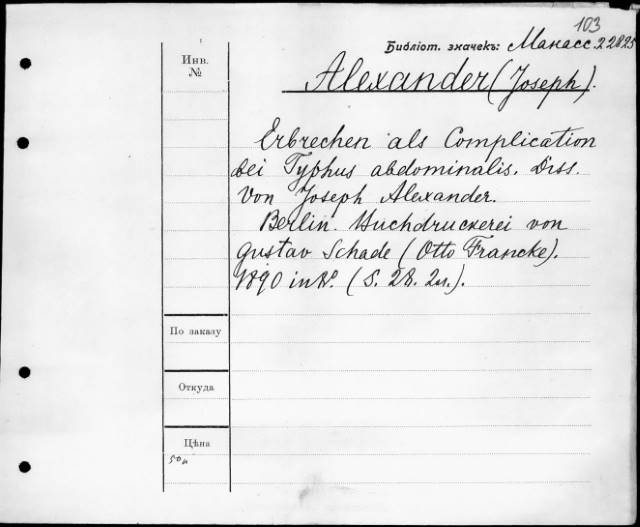 103
Библіот. значекъ: Манасс 22825
Инв.
№
Alexander (Joseph).
Erbrechen als Complication
bei Typhus abdominalis. Diss.
von Joseph Alexander.
Berlin. Buchdruckerei von
Gustav Schade (Otto Francke).
1890 in 8º. (S. 28. 2н.).
По заказу
Откуда
Цѣна
50к